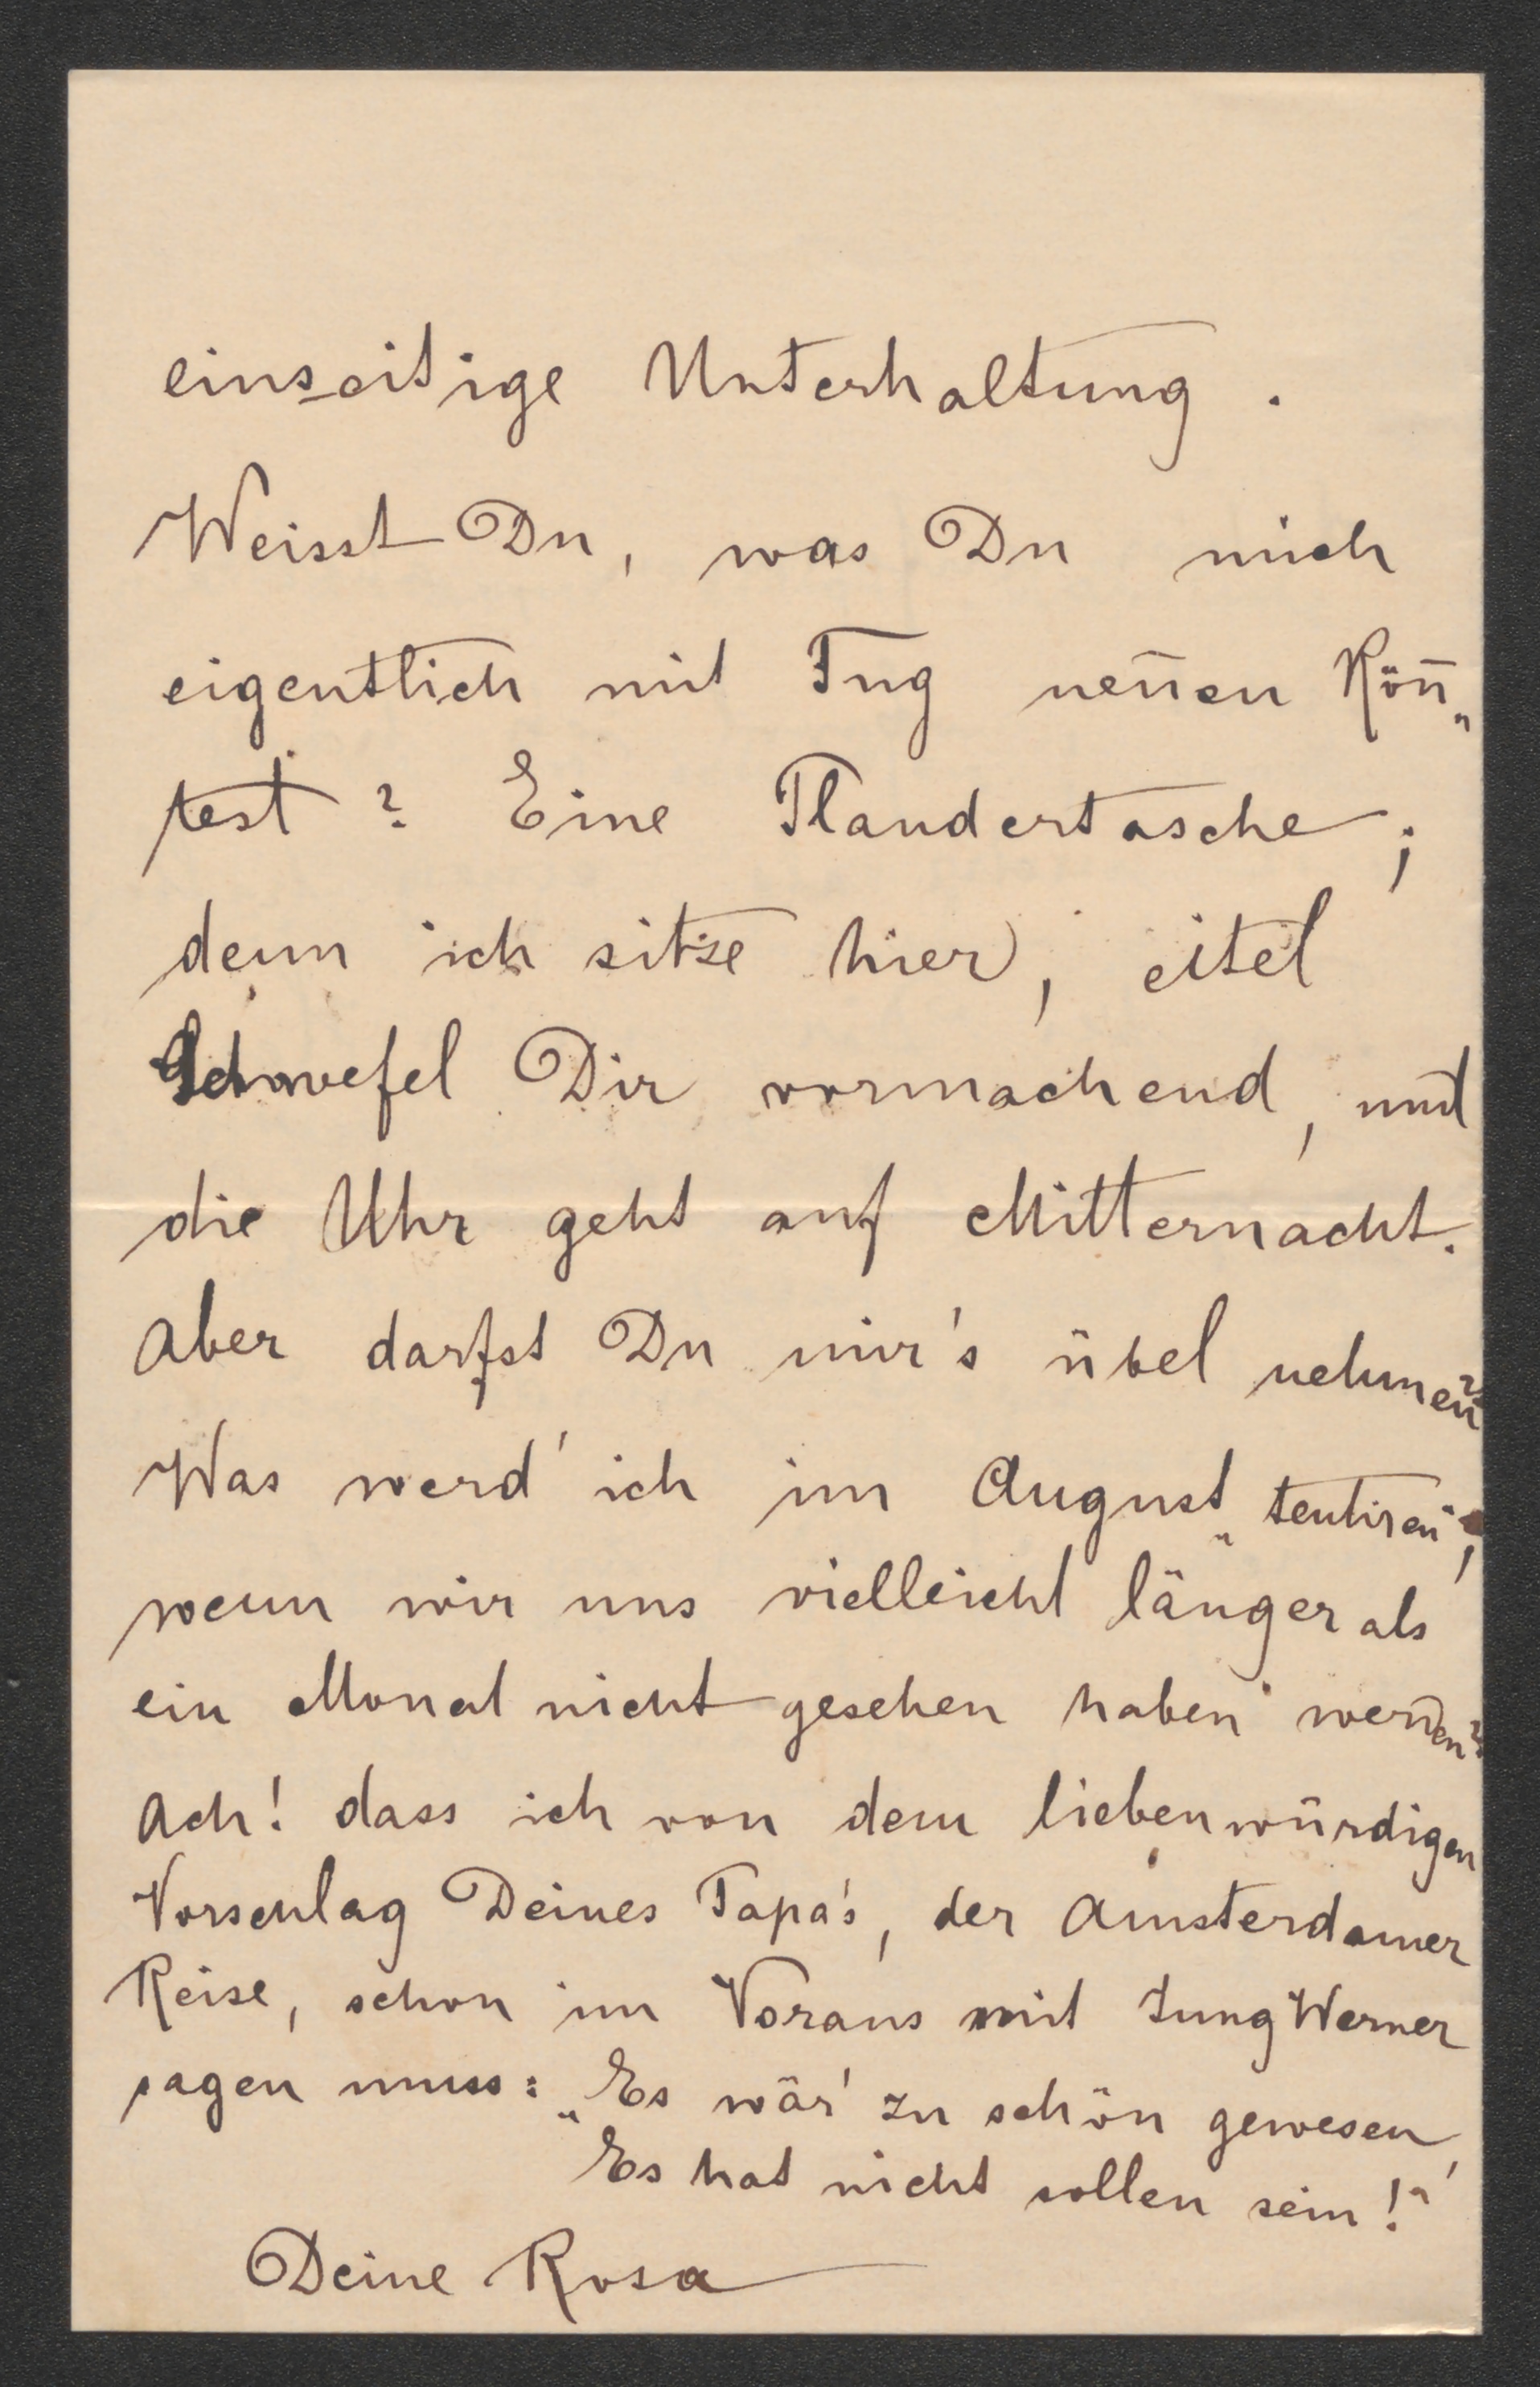 einseitige Unterhaltung.
Weisst Du, was Du mich
eigentlich mit Fug nen̄en kön̄„
test? Eine Plaudertasche;
denn ich sitze hier, eitel
Schwefel Dir vormachend, und
die Uhr geht auf Mitternacht.
Aber darfst Du mir's übel nehmen?
Was werd' ich im August „tentiren",
wenn wir uns vielleicht länger als
ein Monat nicht gesehen haben werden?
Ach! dass ich von dem liebenwürdigen
Vorschlag Deines Papa's, der Amsterdamer
Reise, schon im Voraus mit Jung Werner
sagen muss: „Es wär' zu schön gewesen,
Es hat nicht sollen sein!"
Deine Rosa